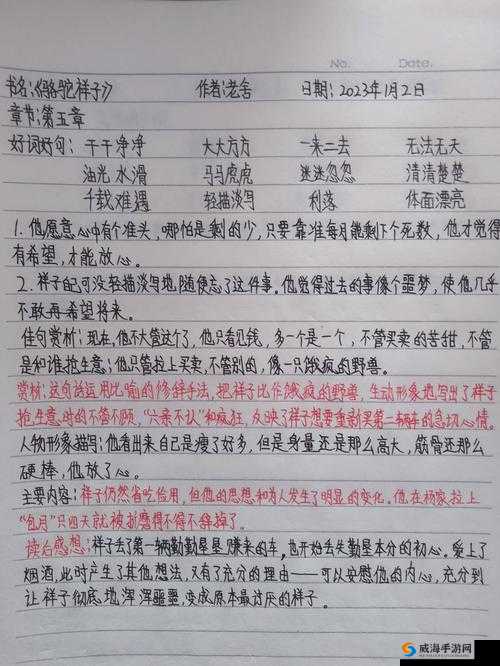 No. Date.
书名:《骆驼祥子》 作者:老舍 日期:2023年1月2日
章节:第五章
好词好句:干干净净 大大方方 一来二去 无法无天
油光水滑 马马虎虎 迷迷忽忽 清清楚楚
千载难遇 轻描淡写 利落 体面漂亮
1.他愿意心中有个准头,哪怕是剩的少,只要靠准每月能剩下个死数,他才觉得
有希望,才能放心。
2.祥子可没轻描淡写地随便忘了这件事。他觉得过去的事像个噩梦,使他几乎
不敢再希望将来。
佳句赏析:现在,他不大管这个了,他只看见钱,多一个是一个,不管买卖的苦甜,不管
是和谁抢生意;他只管拉上买卖,不管别的,像一只饿疯的野兽。
赏析:这句话运用比喻的修辞手法,把祥子比作饿疯的野兽,生动形象地写出了祥子
抢生意时的不管不顾,“六亲不认”和疯狂,反映了祥子想要重新买第一辆车的急切心情。
人物形象描写:他看出来自己是瘦了好多,但是身量还是那么高大,筋骨还那么
硬棒,他放了心。
主要内容:祥子仍然省吃俭用,但他的思想和为人发生了明显的变化。他在杨家拉上
“包月”只四天就被折磨得不得不辞掉了。
读后感想:祥子丢了第一辆勤勤垦垦赚来的车,也开始丢失勤垦本分的初心。爱上了
烟酒,此时产生了其他想法,又有了充分的理由——可以安慰他的内心,充分到
让祥子彻底地浑浑噩噩,变成原本最讨厌的样子。
威海手游网